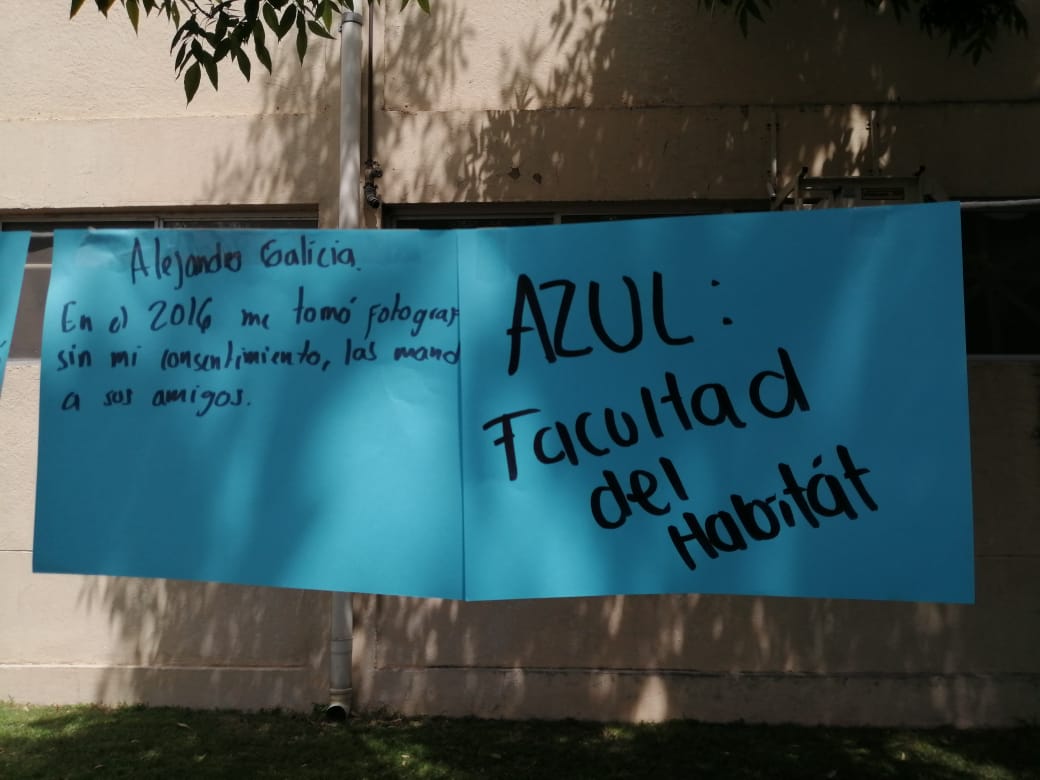 Alejandro Galicia.
En el 2016 me tomó fotograf
sin mi consentimiento, las mand
a sus amigos.
AZUL:
Facultad
del
Habitát